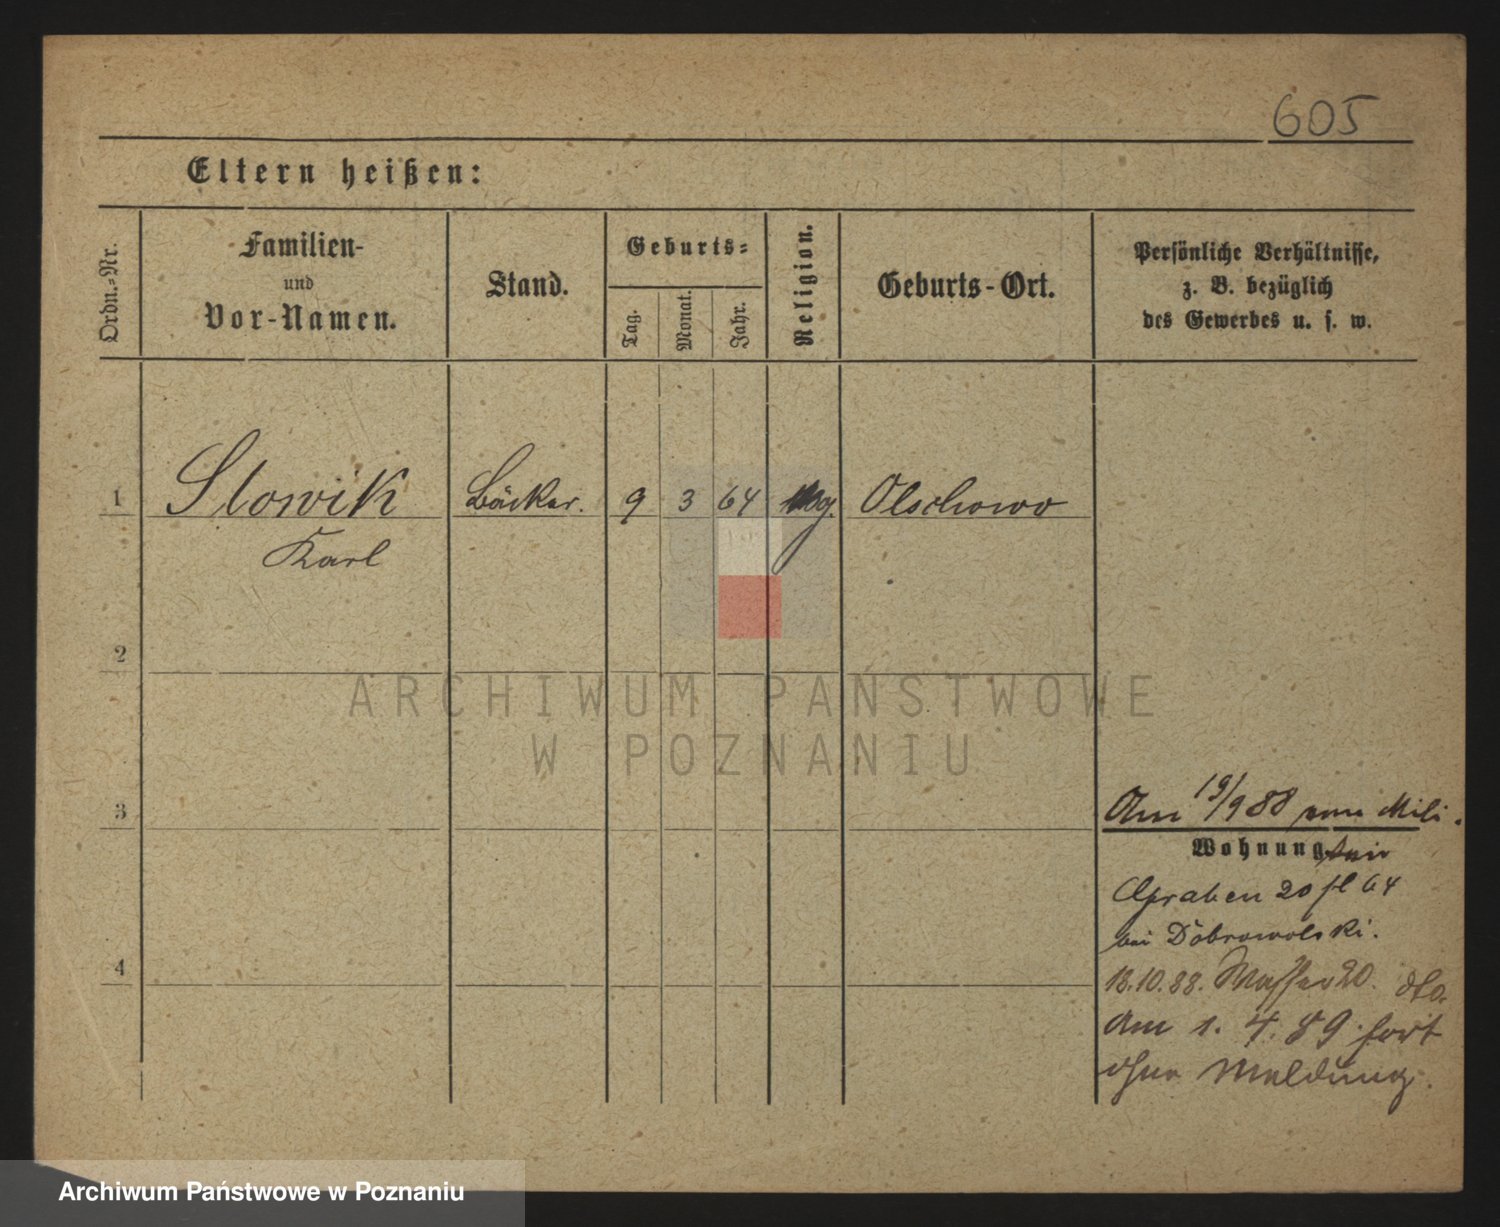 605
Eltern heißen:
Ordn.-Nr.
Familien-
und
Vor-Namen.
Stand.
Geburts-
Tag.
Monat.
Jahr.
Religion.
Geburts-Ort.
Persönliche Verhältnisse,
z. B. bezüglich
des Gewerbes u. s. w.
1 Slowik Bäcker. 9 3 64 Olschowo
Karl
2
3
4
Am 19/9 88 vom Mili.
Wohnung. tair
Graben 20 fl 64
bei Dobrowolski.
18.10.88. Wasser 20. dto.
Am 1. 4. 89 fort
ohne Meldung.
ARCHIWUM PAŃSTWOWE
W POZNANIU
Archiwum Państwowe w Poznaniu